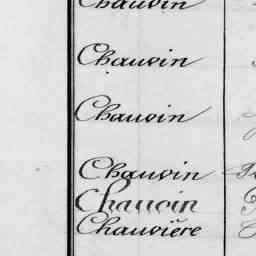 Chauvin
Chauvin
Chauvin
Chauvin
Chauvin
Chauvière